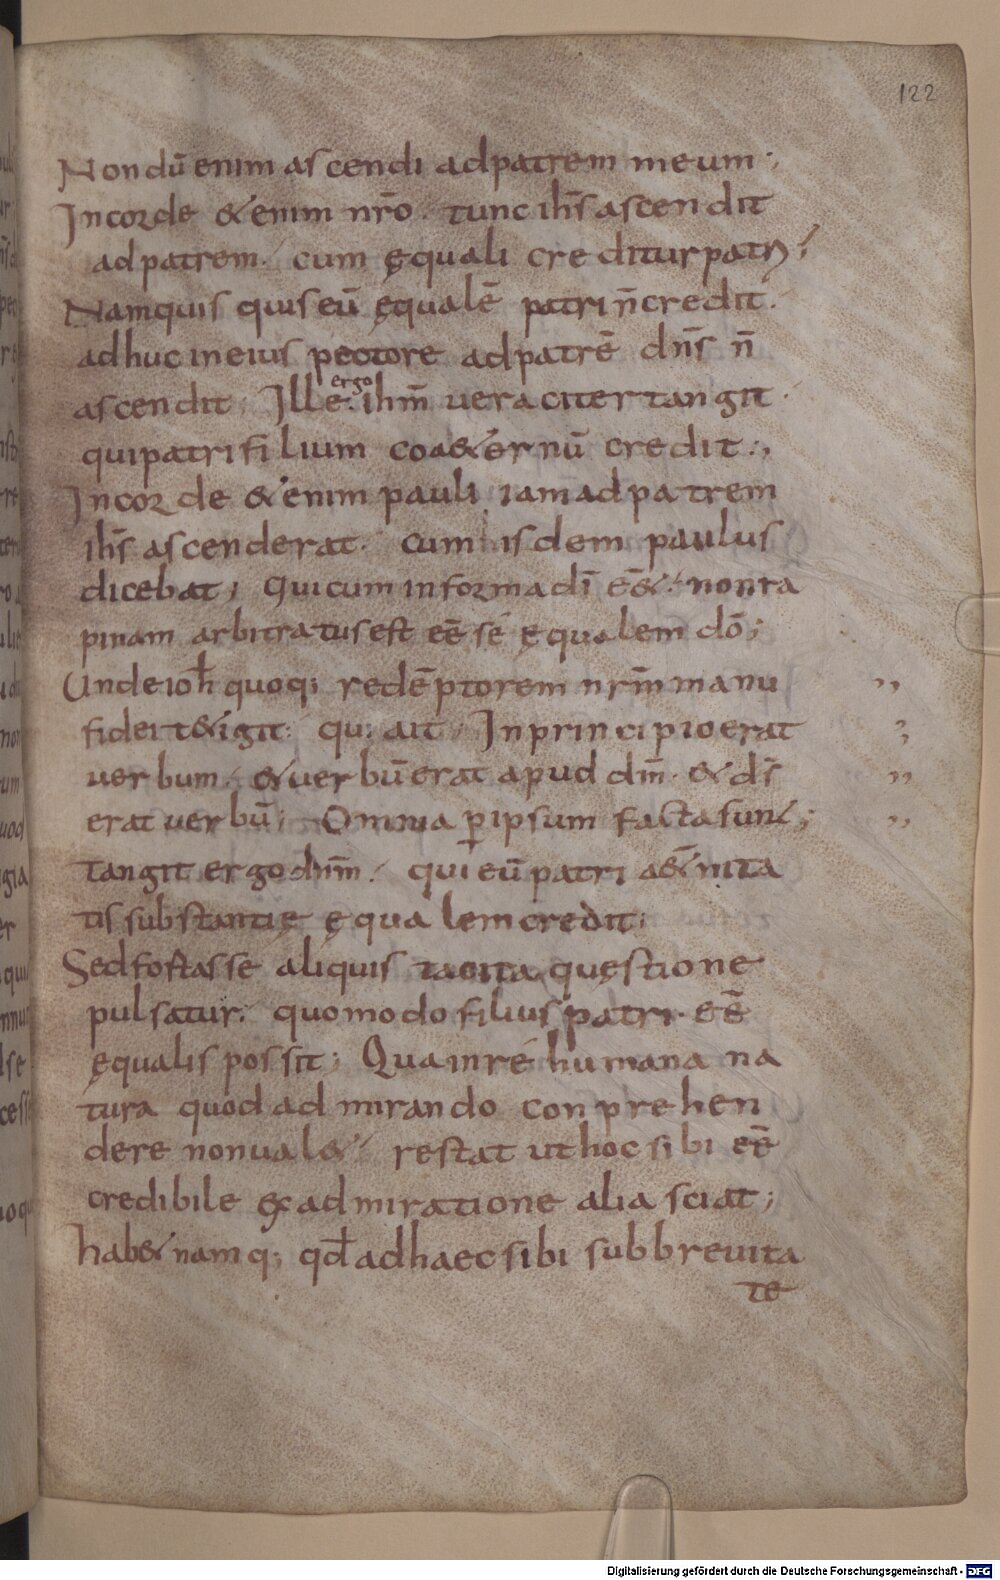 122
Nondū enim ascendi ad patrem meum;
In corde &enim nr̄o. tunc ih̄s ascendit
ad patrem. cum ęquali creditur patri;
Namquis quis eū ęqualē patri n̄ credit.
adhuc in eius pectore ad patrē dn̄s n̄
ascendit; Ille ergo ihm̄ veraciter tangit.
qui patri filium coa&ernū credit;
In corde &enim pauli iam ad patrem
ih̄s ascenderat. cum isdem paulus
dicebat; Qui cum in forma dī eēt. non ra
pinam arbitratus est eē sē ęqualem dō;
Unde ioh̄ quoq; redēptorem nr̄m manu
fidei t&igit. qui ait; In principio erat
verbum. & verbū erat apud dm̄. & dī
erat verbū; Omnia p̱ ipsum facta sunt;
tangit ergo dn̄m. qui eū patri a&ernita
tis substantię ęqualem credit;
Sed fortasse aliquis tacita quęstione
pulsatur. quomodo filius patri eē
ęqualis possit; Qua in re humana na
tura quod admirando conprehen
dere non val&. restat ut hoc sibi eē
credibile ex admiratione alia sciat;
hab& namq; qd̄ ad haec sibi sub brevita
te
Digitalisierung gefördert durch die Deutsche Forschungsgemeinschaft - DFG